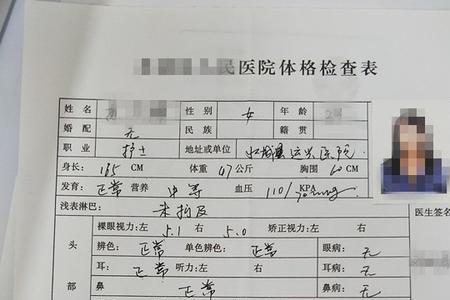 民医院体格检查表
姓名 性别 女 年龄
婚配 无 民族 籍贯
职业 护士 地址或单位 医院
身长: 165 CM 体重 47公斤 胸围 CM
发育: 正常 营养 中等 血压 110/ KPA
浅表淋巴: 未扪及 医生签名
裸眼视力:左 5.1 右 5.0 矫正视力:左 右
头 辨色: 正常 单色辨色: 正常 眼病: 无
耳: 正常 听力:左 右 耳病: 无
部 鼻 正常 鼻病: 无